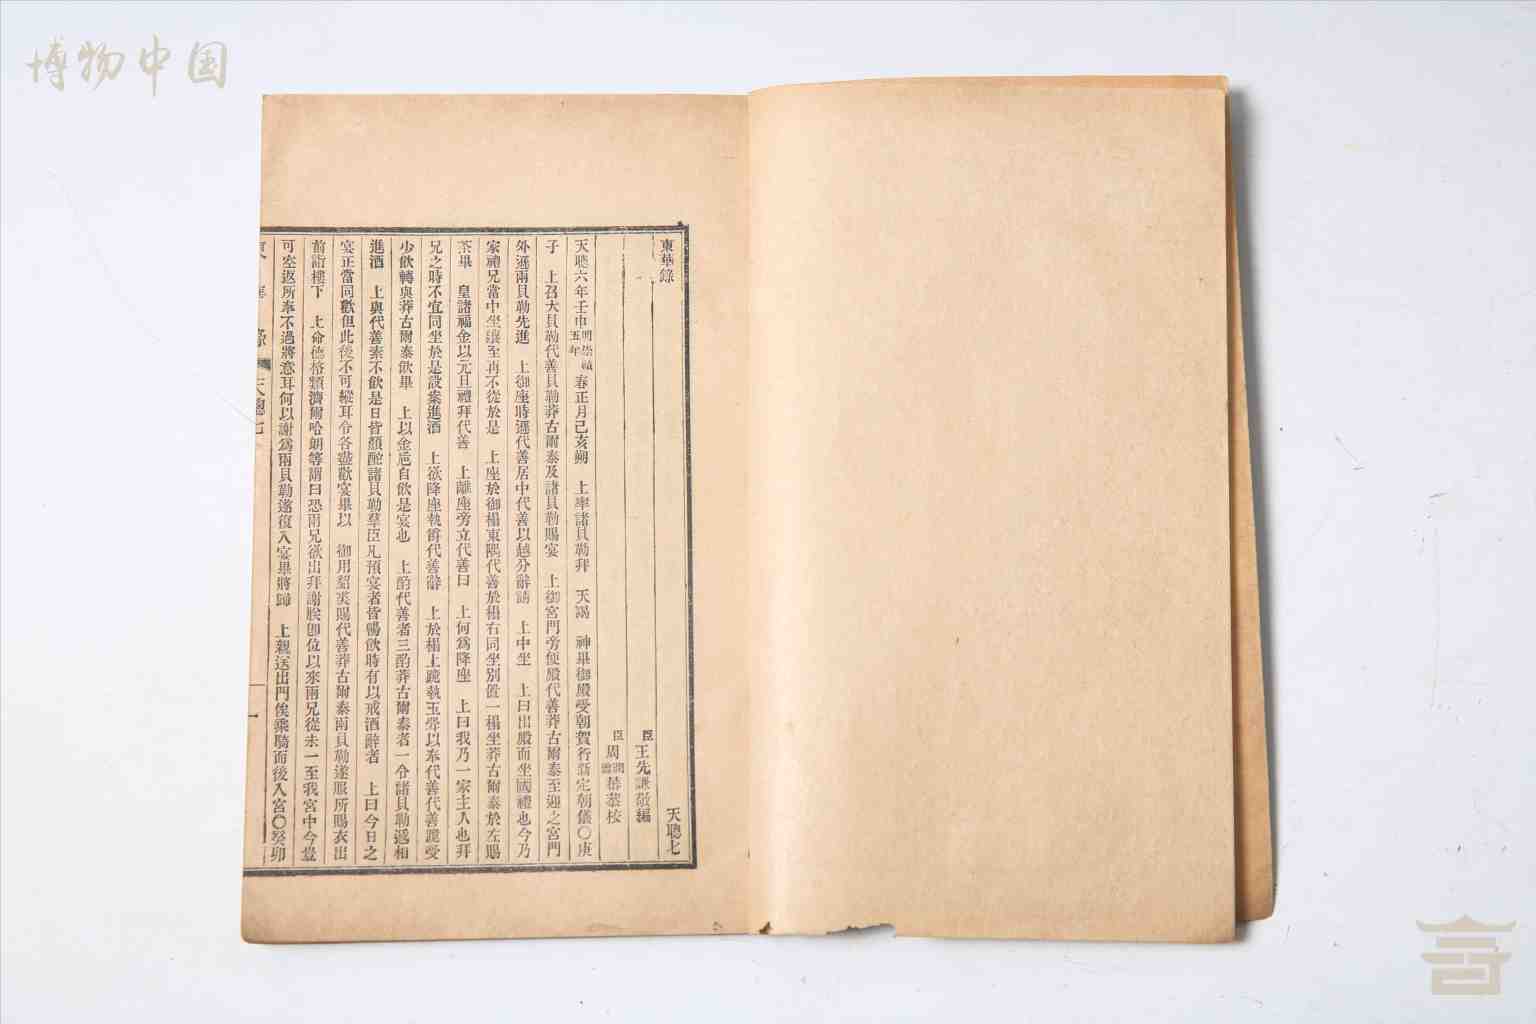 博物中国
東華錄
天聰七
臣王先謙敬編
臣周潤蕃恭校
天聰六年壬申明崇禎五年春正月己亥朔　上率諸貝勒拜　天謁　神畢御殿受朝賀行新定朝儀〇庚
子　上召大貝勒代善貝勒莽古爾泰及諸貝勒賜宴　上御宮門旁便殿代善莽古爾泰至迎之宮門
外遜兩貝勒先進　上御座時遜代善居中代善以越分辭請　上中坐　上曰出殿而坐國禮也今乃
家禮兄當中坐讓至再不從於是　上座於御榻東隅代善於榻右同坐別置一榻坐莽古爾泰於左賜
茶畢　皇諸福金以元旦禮拜代善　上離座旁立代善曰　上何為降座　上曰我乃一家主人也拜
兄之時不宜同坐於是設案進酒　上欲降座執爵代善辭　上於榻上跪執玉斝以奉代善代善跪受
少飲轉與莽古爾泰飲畢　上以金卮自飲是宴也　上酌代善者三酌莽古爾泰者一令諸貝勒遞相
進酒　上與代善素不飲是日皆顏酡諸貝勒羣臣凡預宴者皆暢飲時有以戒酒辭者　上曰今日之
宴正當同歡但此後不可縱耳令各盡歡宴畢以　御用貂裘賜代善莽古爾泰兩貝勒遂服所賜衣出
前詣樓下　上命德格類濟爾哈朗等謂曰恐兩兄欲出拜謝朕卽位以來兩兄從未一至我宮中今豈
可空返所奉不過將意耳何以謝為兩貝勒遂復入宴畢將歸　上親送出門俟乘騎而後入宮〇癸卯
東華錄　天聰七　一